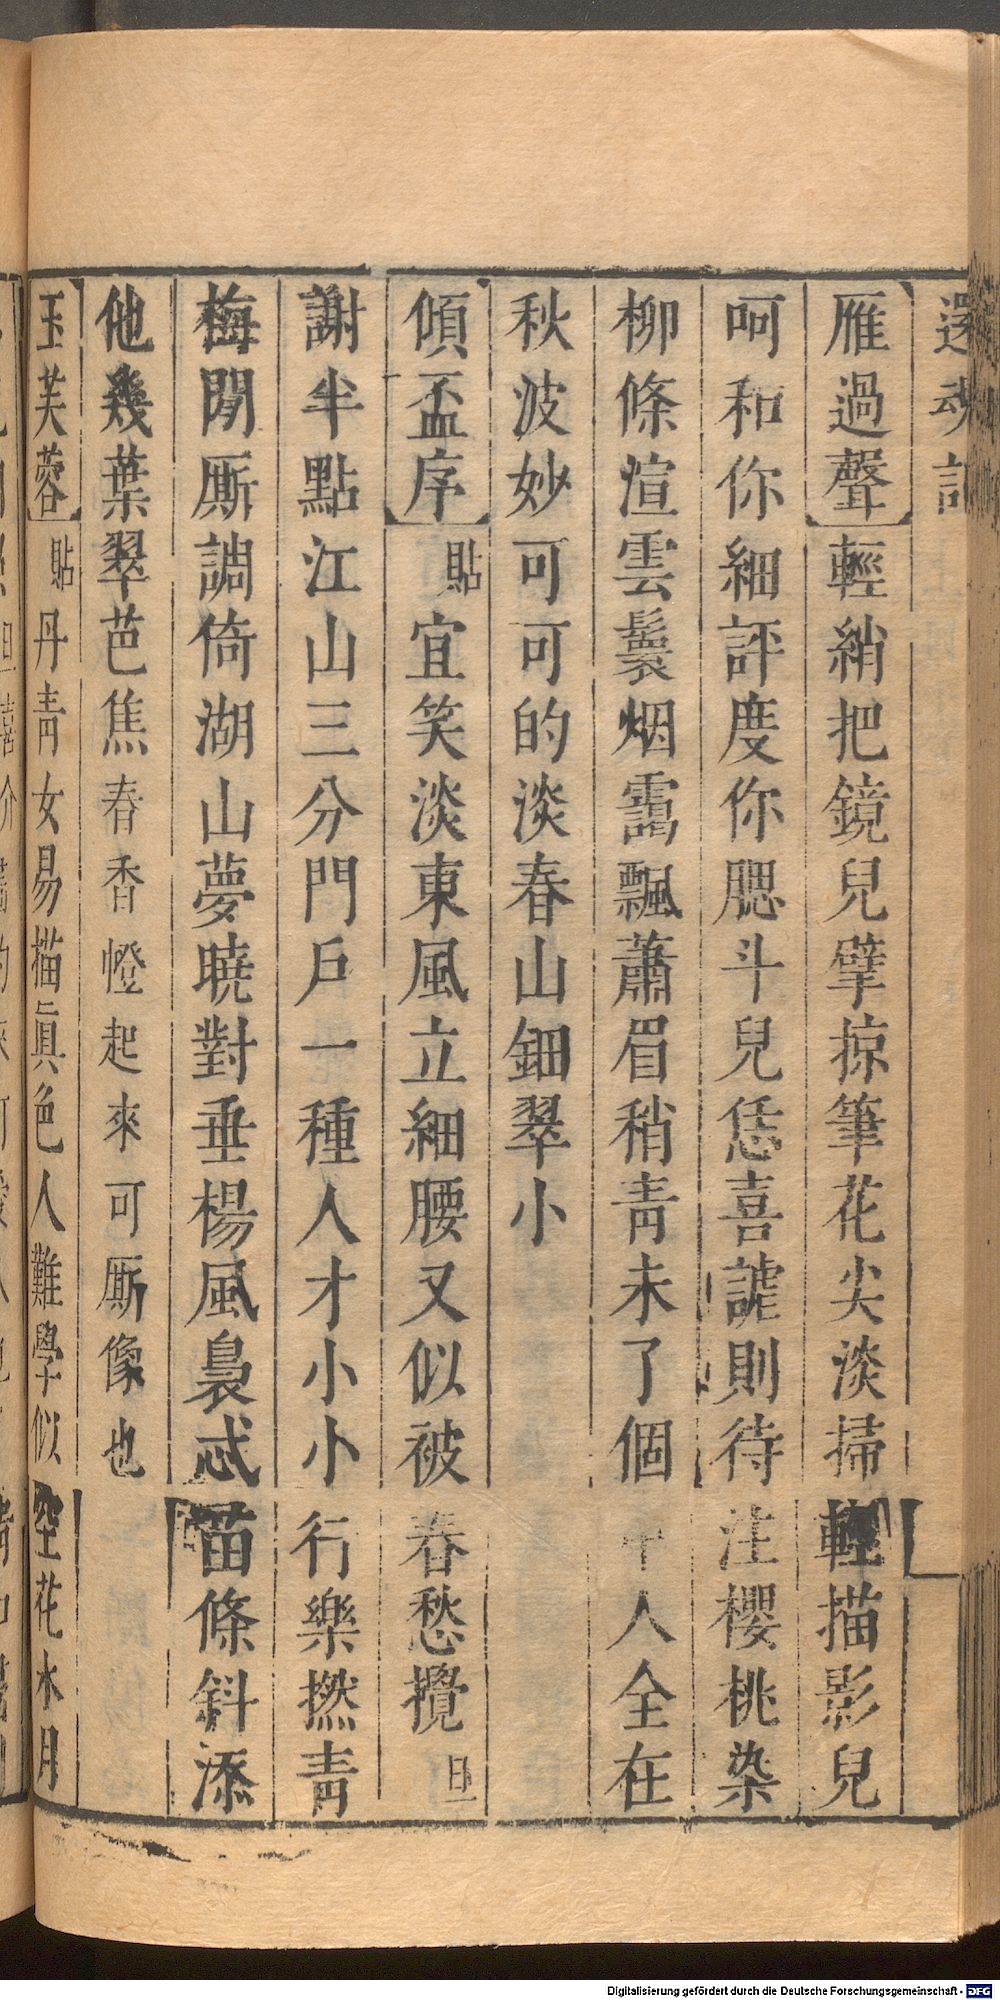 還魂記
【雁過聲】輕綃把鏡兒擘掠筆花尖淡掃輕描影兒
呵和你細評度你腮斗兒恁喜謔則待注櫻桃染
柳條渲雲鬟烟靄飄蕭眉稍靑未了個中人全在
秋波妙可可的淡春山鈿翠小
【傾盃序】貼宜笑淡東風立細腰又似被春愁攪旦
謝半點江山三分門戶一種人才小小行樂撚靑
梅閒厮調倚湖山夢曉對垂楊風裊忒苗條斜添
他幾葉翠芭焦春香㡠起來可厮像也
【玉芙蓉】貼丹靑女易描眞色人難學似空花水月
Digitalisierung gefördert durch die Deutsche Forschungsgemeinschaft - DFG